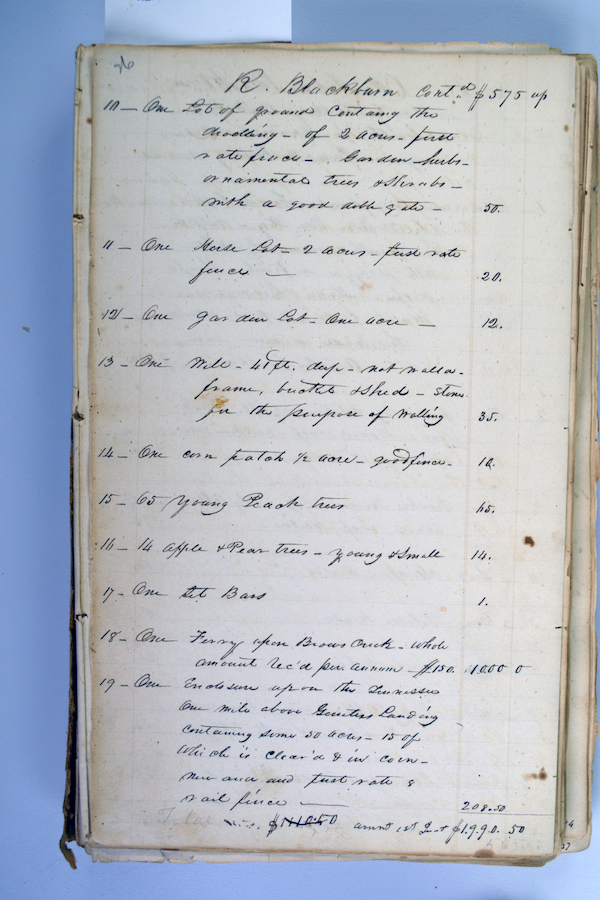 26
R. Blackburn Cont.d $575 up
10 — One Lot of ground Containg the
dwelling - of 2 acres - first
rate fence - Garden herbs -
ornamental trees & Shrubs -
with a good dble gate - 50.
11 — One Horse Lot - 2 acres - first rate
fence — 20.
12 — One garden Lot - One acre — 12.
13 — One Well - 41 ft. deep - not wall'd -
frame, bucket & shed - stone
for the purpose of Walling 35.
14 — One corn patch ½ acre - good fence - 10.
15 — 65 young Peach trees 65.
16 — 14 apple & Pear trees - young & Small 14.
17 - One Set Bars 1.
18 - One Ferry upon Brows Creek - Whole
amount Rec'd per annum - $150. 1000 0
19 - One Enclosure up on the Tennessee
One mile above Gunters Landing -
Containing some 30 acres - 15 of
Which is Clear'd & in corn -
new and first rate 8
rail fince — 208.50
amnt $1.990. 50